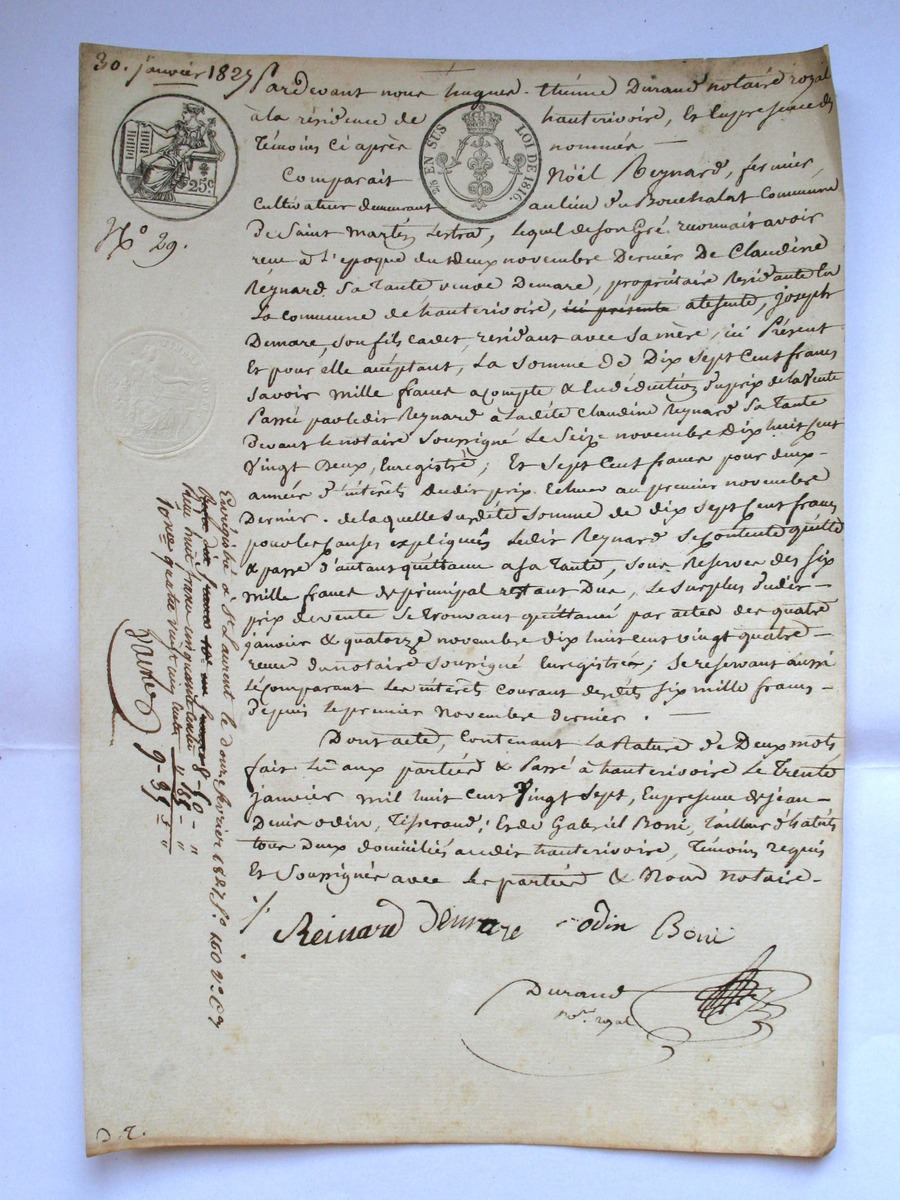 30. janvier 1827
Pardevant nous hugues-thiene Durand notaire royal
à la résidence de hauterivoire, Et Enpresence des
Témoins Ci après nommés —
25 c.
26 EN SUS LOI DE 1816.
Comparait Nöël Reynard, fermier
Cultivateur demeurant aulieu du Bouchalat Commune
N° 29.
de Saint Martin Lestrat, lequel deson Gré reconnait avoir
reçu à l'époque du deux novembre Dernier De Claudine
Reynard Sa Tante veuve Demare, propriétaire Résidante En
La commune de hauterivoire, ici présente absente, joseph
Demare, son fils cadet, résidant avec Samère, ici Présent
Et pour elle acceptant, La somme de Dix Sept Cent francs
Savoir mille francs acompte & Endéduction duprix de la Vente
Passé parledit Reynard à Ladite Claudine Reynard Sa Tante
Devant le notaire Soussigné Le Seize novembre Dix huit cent
Vingt Deux, Enregistré; Et Sept Cent francs pour deux
années d'intérêts dudit prix Echues au premier novembre
Dernier. de laquelle Susdite Somme de dix Sept Cent francs
pour les Causes expliquées Ledit Reynard Secontente quitte
& passe d'autant quittance asa Tante, Sous Réserves des Six
mille francs de principal restant Due, Le Surplus dudit
prix de vente Se trouvant quittancé par actes des quatre
janvier & quatorze novembre dix huit cent vingt quatre
reçus dunotaire Soussigné Enregistrés; Se réservant aussi
Lecomparant Les intérêts Courant desdits Six mille francs
Depuis le premier Novembre dernier. —
Dont acte, Contenant La Rature de Deux mots
fait Lu aux parties & Passé à hauterivoire Le Trente
janvier mil huit Cent Vingt Sept, Enpresence de jean
Denis Odin, Tisserand, Et de Gabriel Boni, Tailleur d'habits
tous Deux domiciliés audit hauterivoire, Témoins requis
Et Soussignés avec Les parties & Nous notaire
Reinard Demare Odin Boni
Durand
no.re royal
Enregistré à St Laurent le douze février 1827 f° 160 v° C 9
Reçu huit francs cinquante centimes 8-50-"
10me quatre vingt cinq centes " 85-"
9-35-"
D. R.